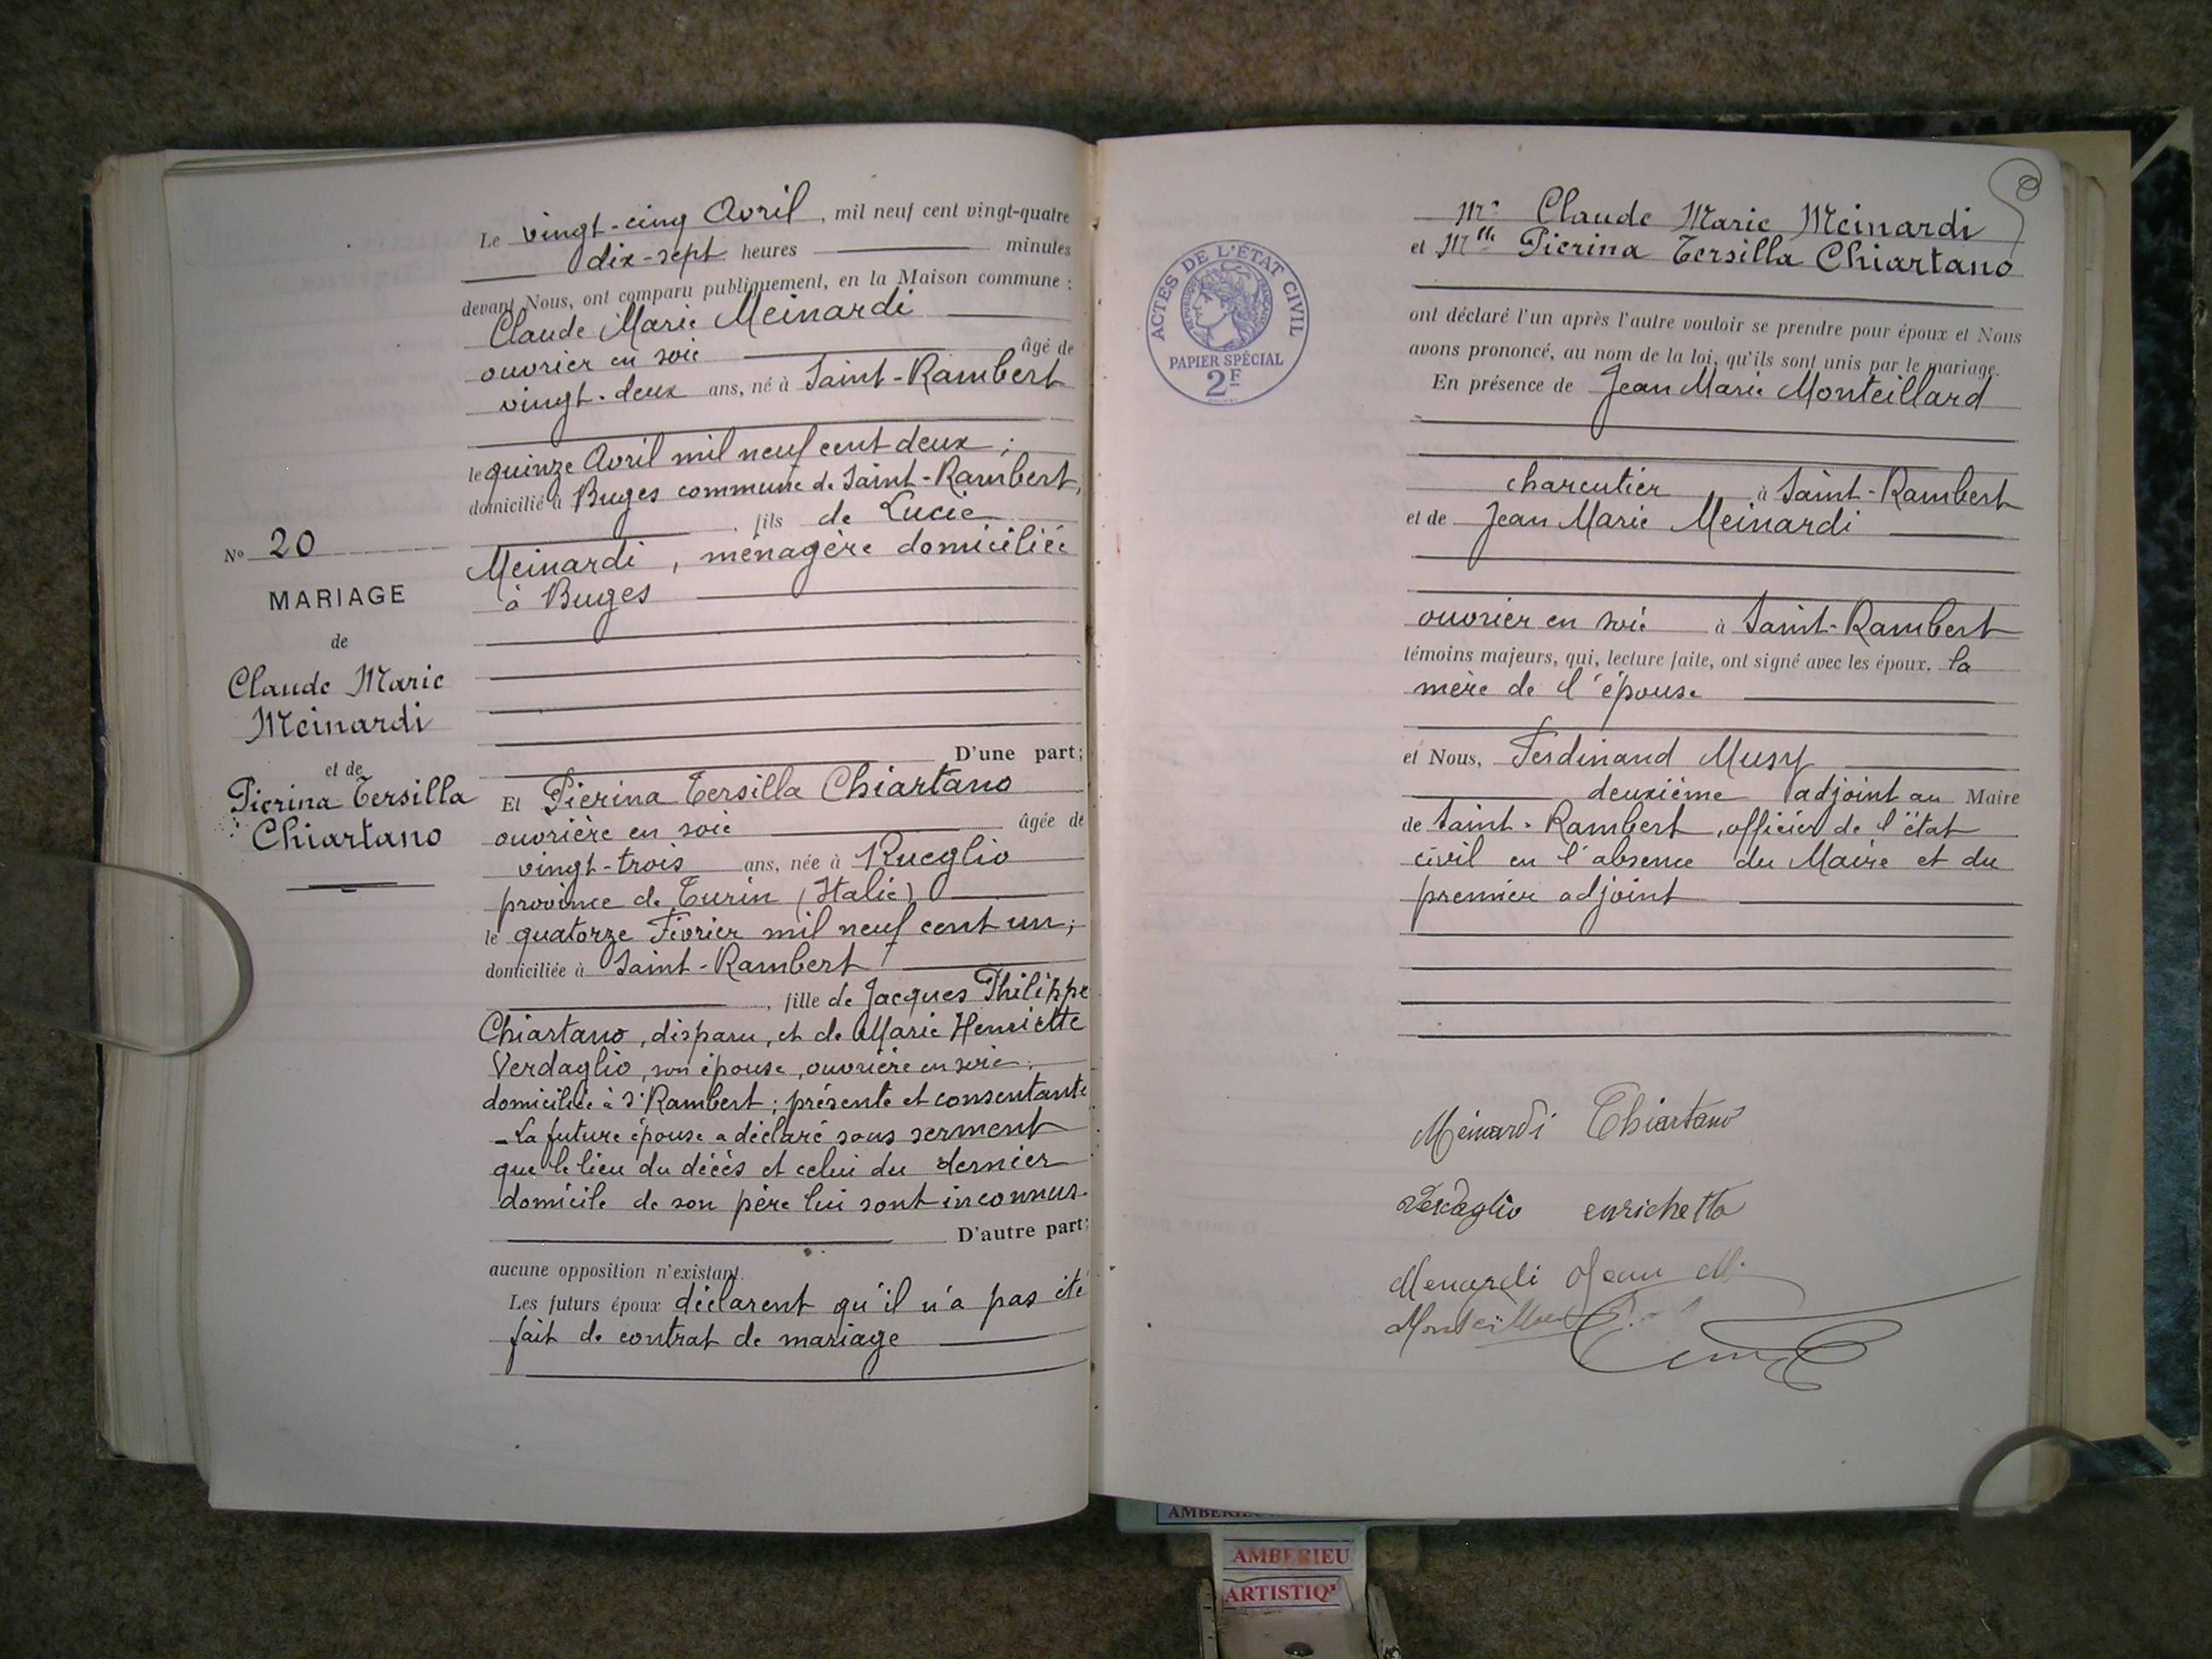 Le vingt-cinq Avril, mil neuf cent vingt-quatre
dix-sept heures minutes
devant Nous, ont comparu publiquement, en la Maison commune :
Claude Marie Meinardi
ouvrier en soie âgé de
vingt-deux ans, né à Saint-Rambert
le quinze Avril mil neuf cent deux ;
domicilié à Buges commune de Saint-Rambert,
fils de Lucie
Meinardi, ménagère domiciliée
à Buges
D'une part;
Nº 20
MARIAGE
de
Claude Marie
Meinardi
et de
Pierina Tersilla
Chiartano
Et Pierina Tersilla Chiartano
ouvrière en soie âgée de
vingt-trois ans, née à Rueglio
province de Turin (Italie)
le quatorze Février mil neuf cent un;
domiciliée à Saint-Rambert
, fille de Jacques Philippe
Chiartano, disparu, et de Marie Henriette
Verdaglio, son épouse, ouvrière en soie,
domiciliée à St Rambert ; présente et consentante
- La future épouse a déclaré sous serment
que le lieu du décès et celui du dernier
domicile de son père lui sont inconnus.
D'autre part;
aucune opposition n'existant.
Les futurs époux déclarent qu'il n'a pas été
fait de contrat de mariage
Mr Claude Marie Meinardi
et Mlle Pierina Tersilla Chiartano
ont déclaré l'un après l'autre vouloir se prendre pour époux et Nous
avons prononcé, au nom de la loi, qu'ils sont unis par le mariage.
En présence de Jean Marie Monteillard
charcutier à Saint-Rambert
et de Jean Marie Meinardi
ouvrier en soie à Saint-Rambert
témoins majeurs, qui, lecture faite, ont signé avec les époux, la
mère de l'épouse
et Nous, Ferdinand Musy
deuxième adjoint au Maire
de Saint-Rambert, officier de l'état
civil en l'absence du Maire et du
premier adjoint
Meinardi Chiartano
Verdaglio enrichetta
Menardi Jean M.
ACTES DE L'ÉTAT CIVIL
RÉPUBLIQUE FRANÇAISE
PAPIER SPÉCIAL
2F
AMBERIEU
ARTISTIQ